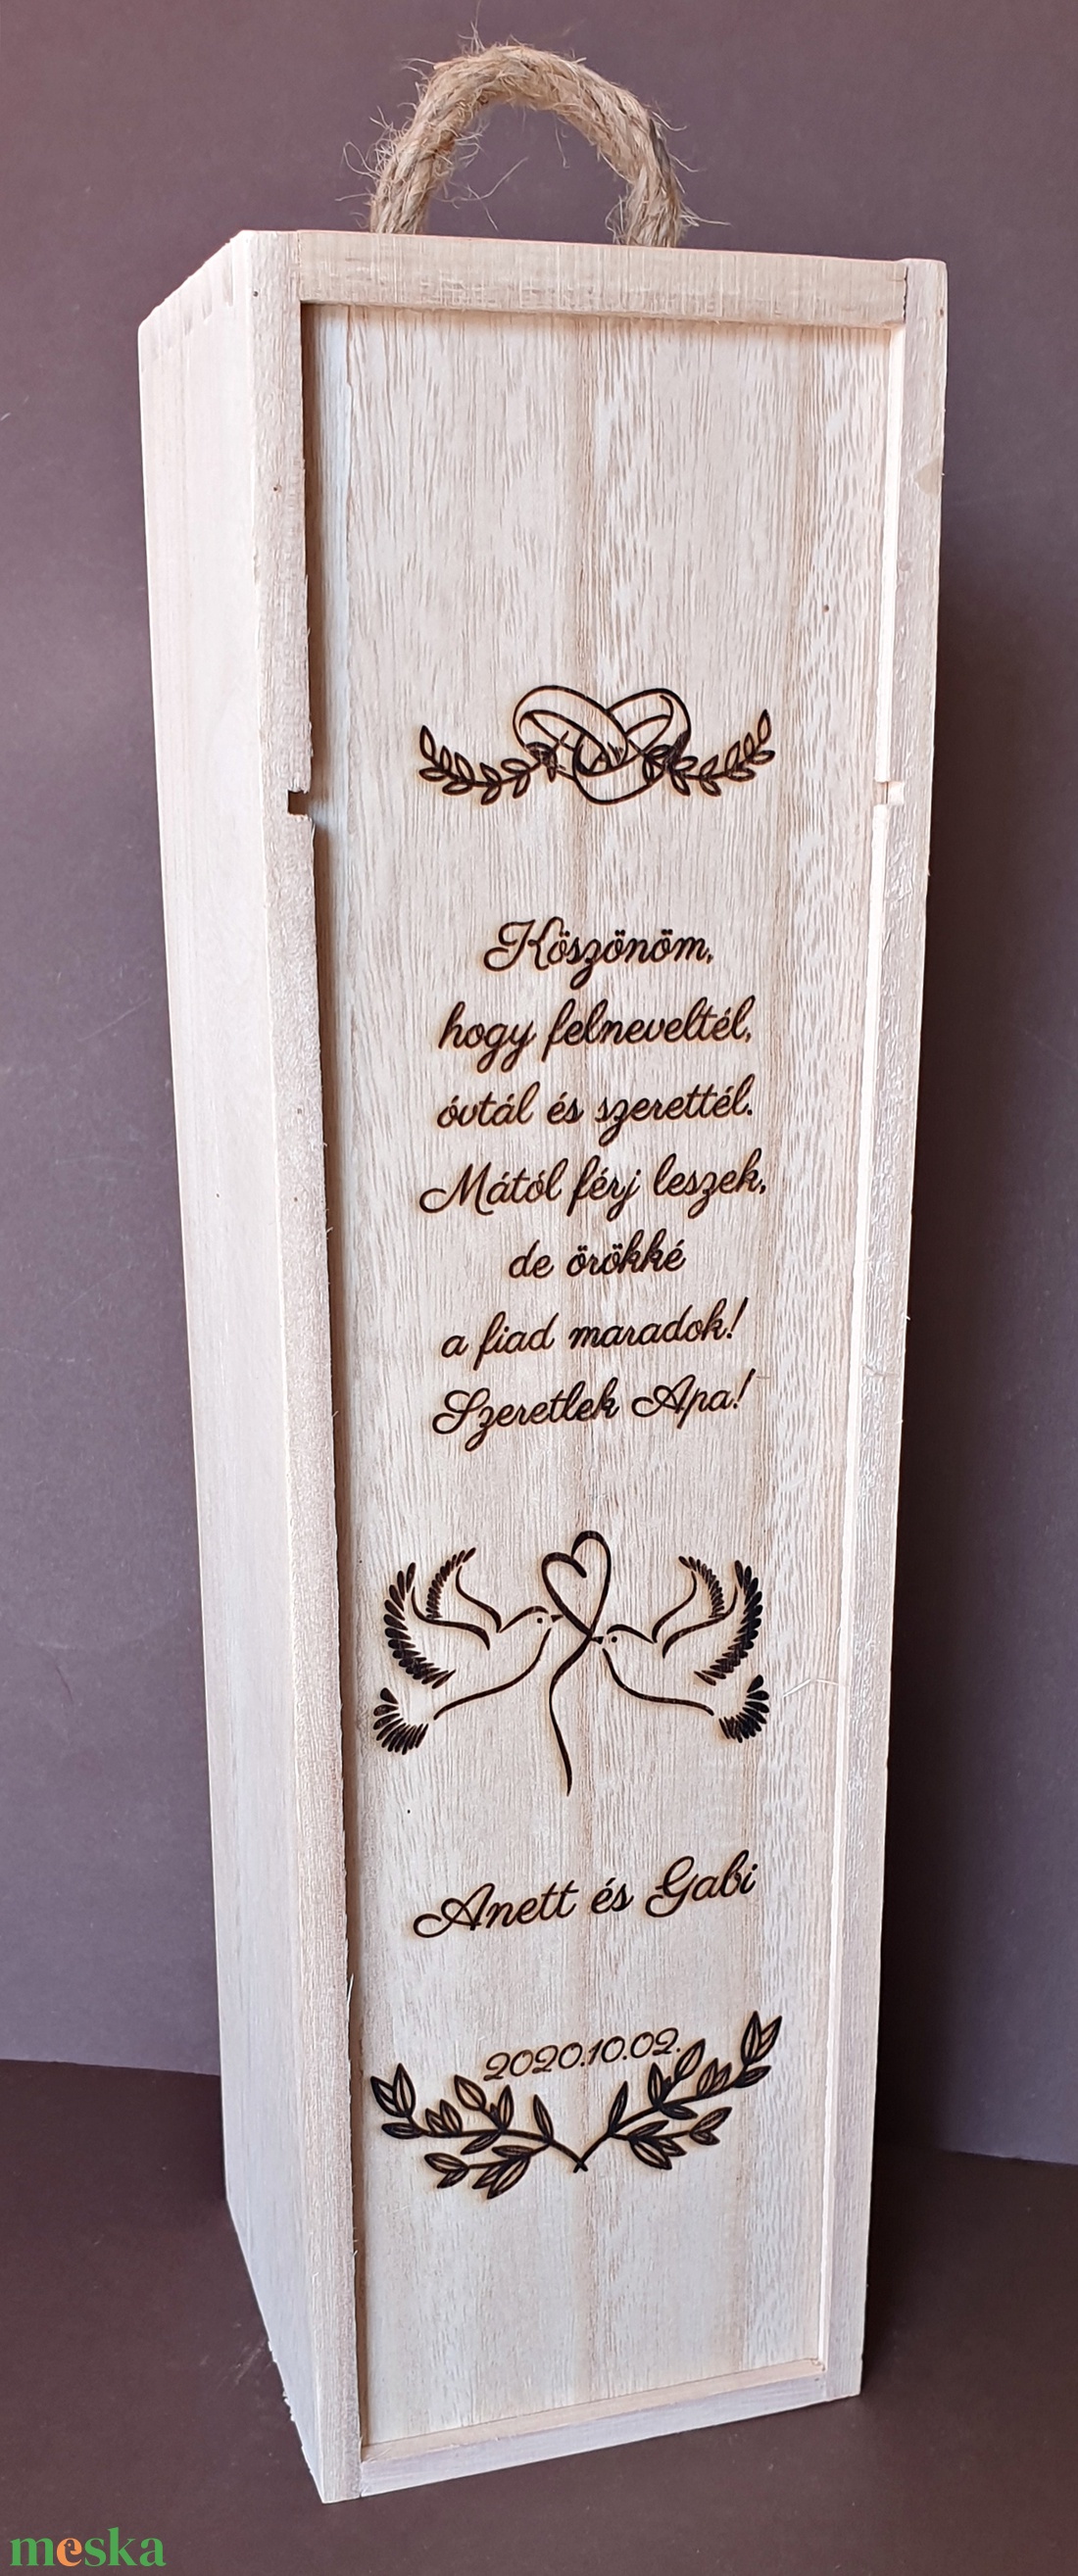 Köszönöm,
hogy felneveltél,
óvtál és szerettél.
Mától férj leszek,
de örökké
a fiad maradok!
Szeretlek Apa!
Anett és Gabi
2020.10.02.
meska